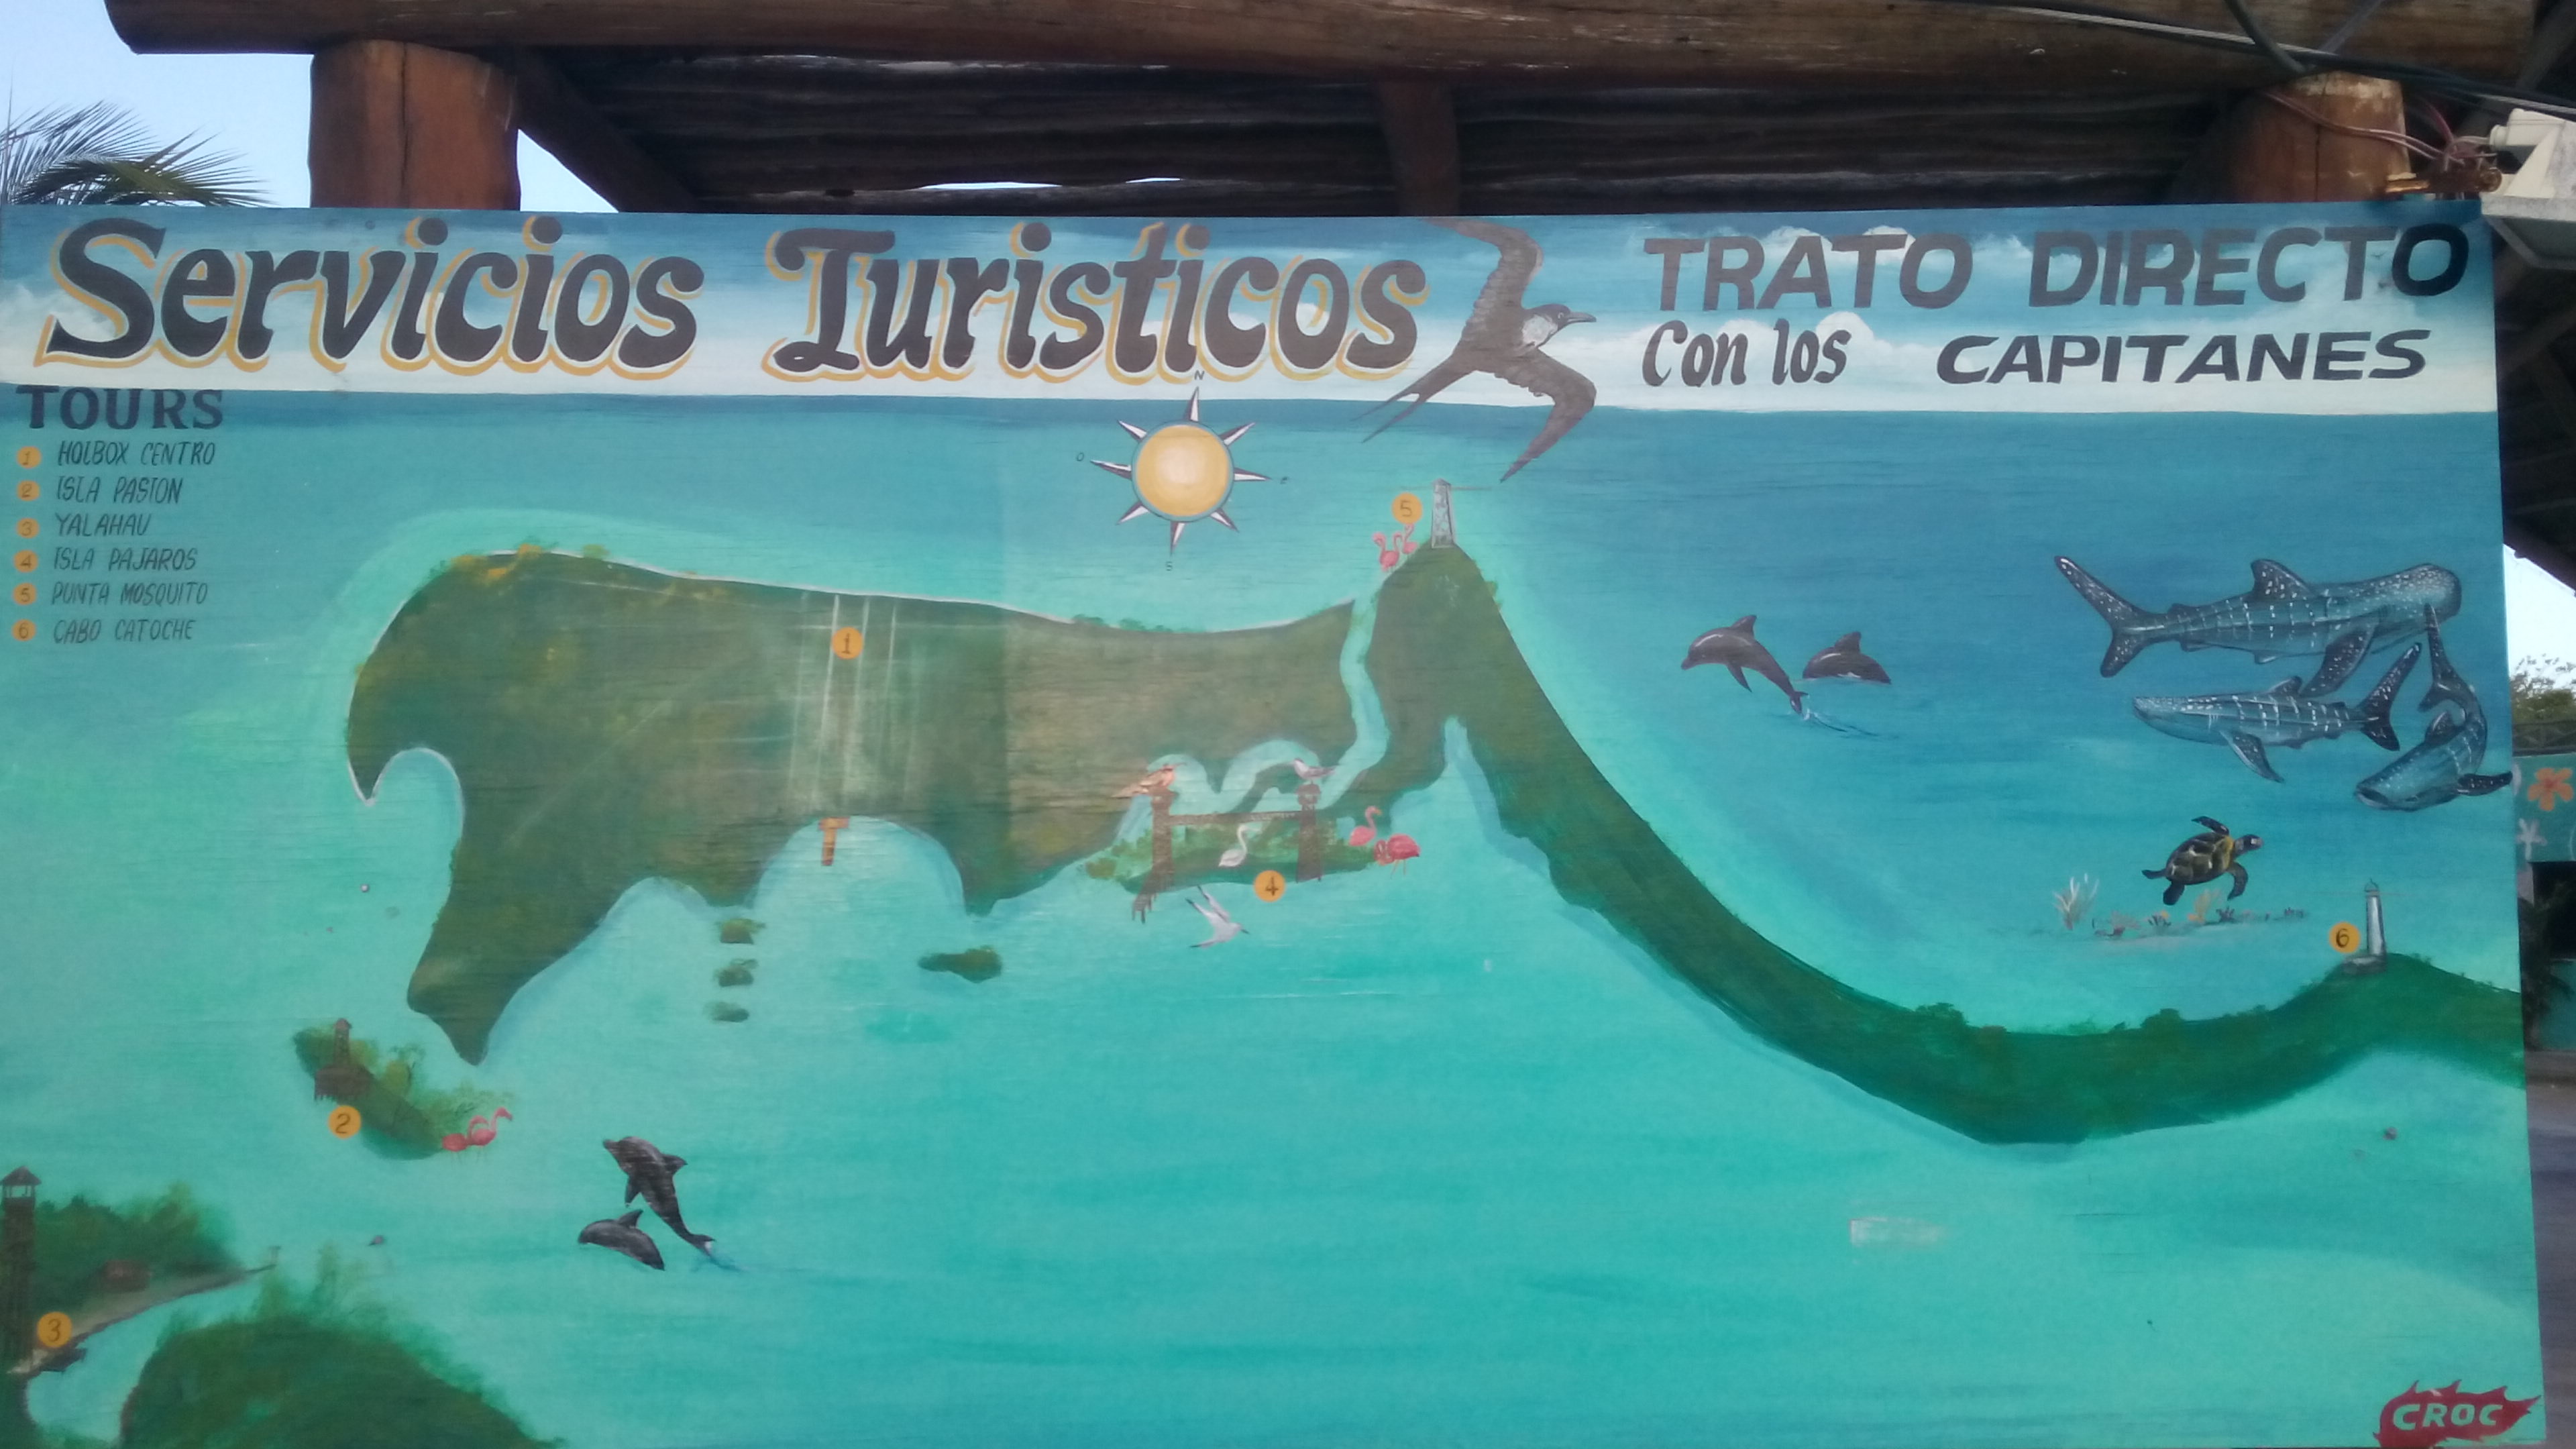 Servicios Turisticos
TRATO DIRECTO
Con los CAPITANES
TOURS
1 HOLBOX CENTRO
2 ISLA PASION
3 YALAHAU
4 ISLA PAJAROS
5 PUNTA MOSQUITO
6 CABO CATOCHE
N
O
E
S
5
1
4
6
2
3
CROC